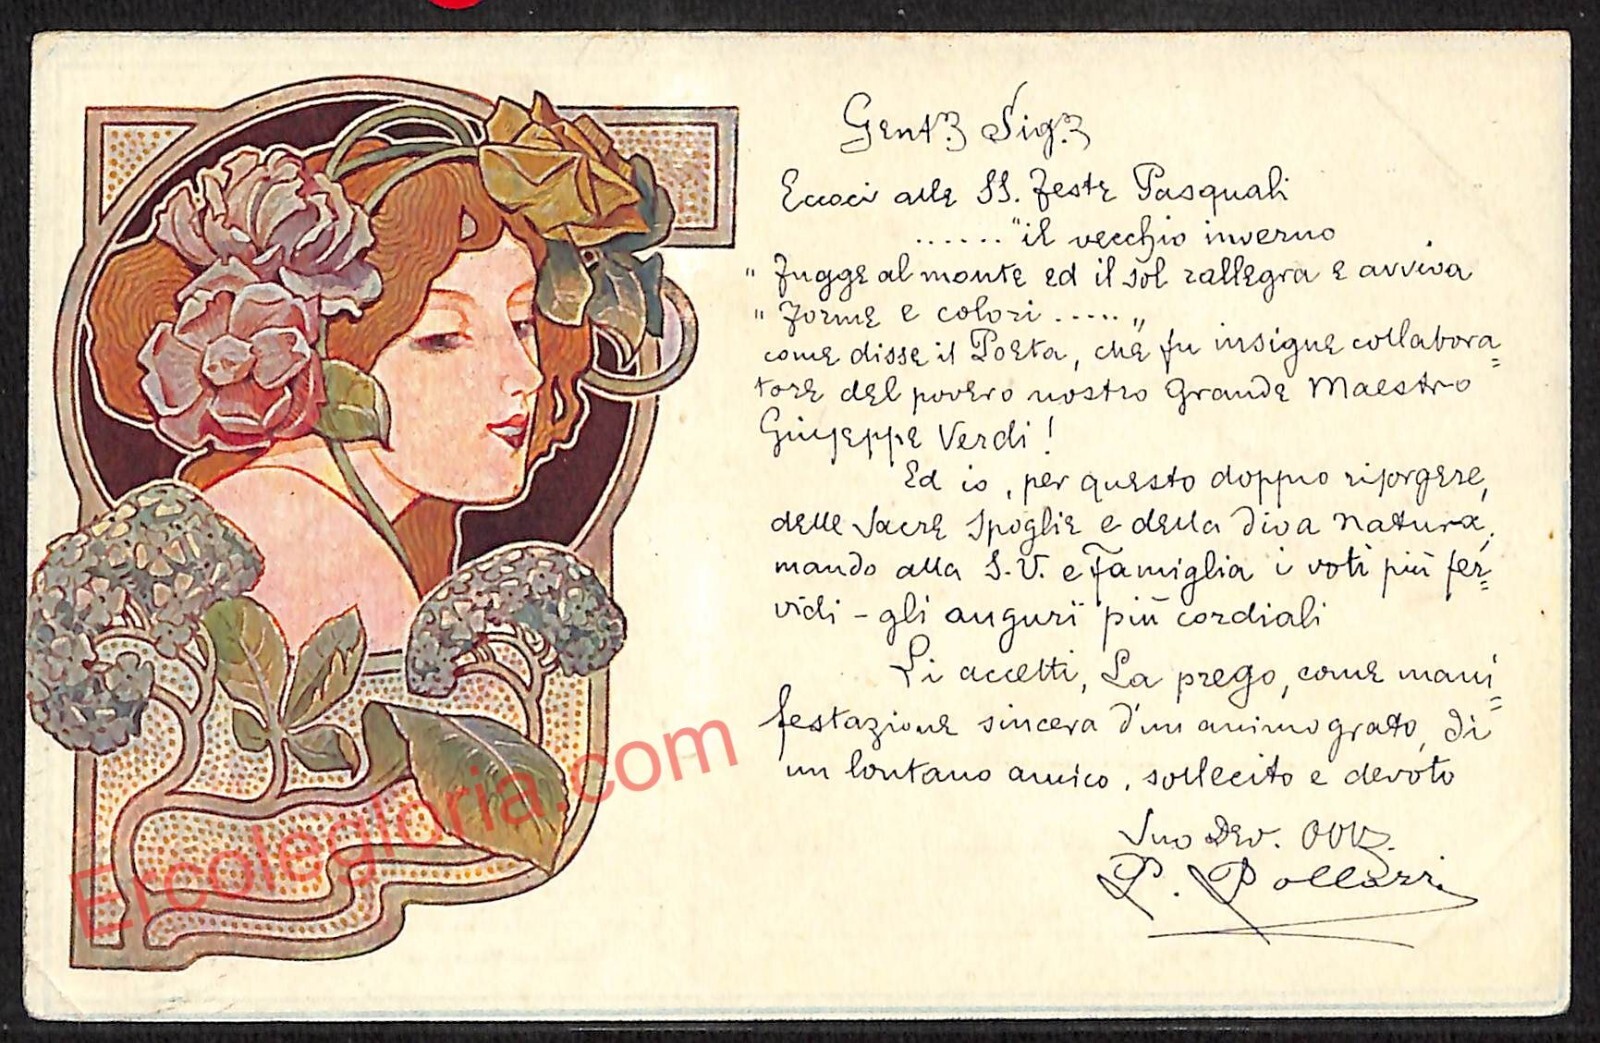 Gent.^ma^ Sig.^ra^
Eccoci alle SS. Feste Pasquali
...... "il vecchio inverno
" Fugge al monte ed il sol rallegra e avviva
" Forme e colori ..... "
come disse il Poeta, che fu insigne collabora=
tore del povero nostro Grande Maestro
Giuseppe Verdi!
Ed io, per questo doppio risorgere,
delle Sacre Spoglie e della Diva Natura,
mando alla S.V. e Famiglia i voti più fer=
vidi - gli augurï più cordiali
Li accetti, La prego, come mani=
festazione sincera d'un animo grato, di
un lontano amico, sollecito e devoto
Suo Dev. Obb.
P.
Ercolegloria.com